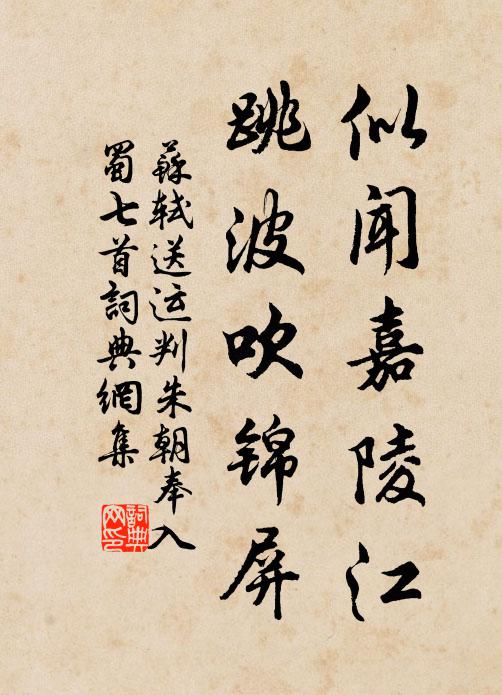 似闻嘉陵江
跳波吹锦屏
蘇轼送运判朱朝奉入
蜀七首詞典網集
詞典
网印